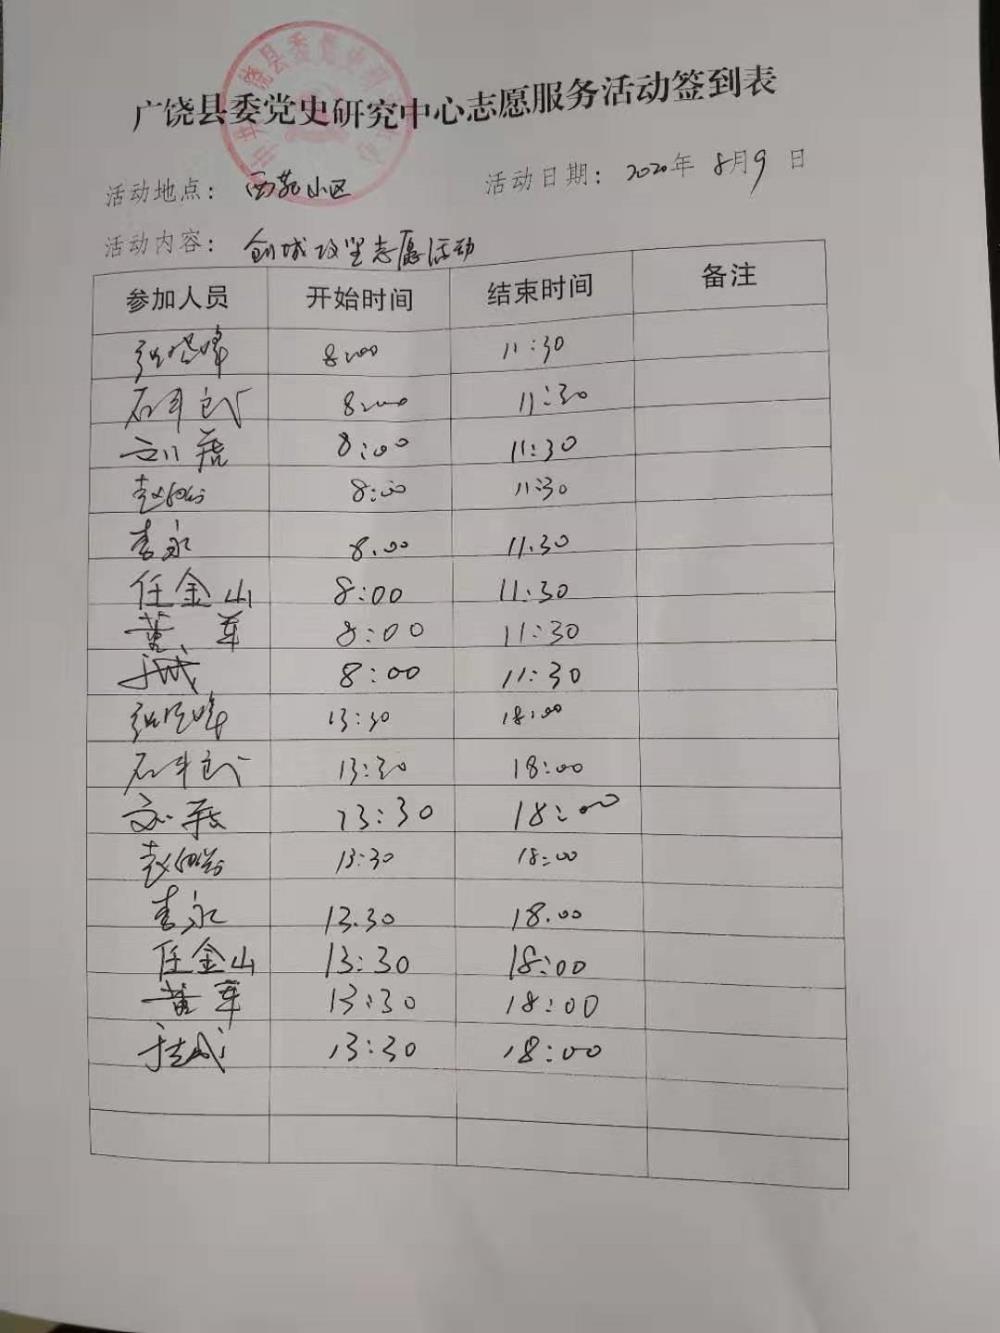 广饶县委党史研究中心志愿服务活动签到表
活动地点： 西苑小区 活动日期： 2020年 8月9 日
活动内容： 创城攻坚志愿活动
参加人员 开始时间 结束时间 备注
张晓峰 8:00 11:30
石 8:00 11:30
刘 8:00 11:30
赵 8:00 11:30
李永 8.00 11.30
任金山 8:00 11:30
董军 8:00 11:30
8:00 11:30
张晓峰 13:30 18:00
石 13:30 18:00
刘 13:30 18:00
赵 13:30 18:00
李永 13.30 18.00
任金山 13:30 18:00
董军 13:30 18:00
13:30 18:00